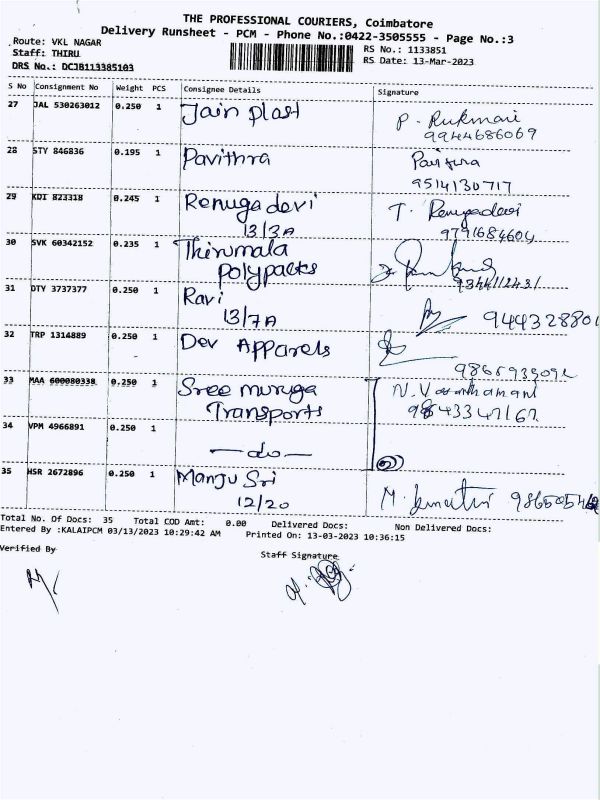 THE PROFESSIONAL COURIERS, Coimbatore
Delivery Runsheet - PCM - Phone No.:0422-3505555 - Page No.:3
Route: VKL NAGAR
Staff: THIRU
DRS No.: DCJB113385103
RS No.: 1133851
RS Date: 13-Mar-2023
S No Consignment No Weight PCS Consignee Details Signature
27 JAL 530263012 0.250 1 Jain plast P. Rukmani
9944686069
28 STY 846836 0.195 1 Pavithra Pavithra
9514130717
29 KDI 823318 0.245 1 Renugadevi T. Renugadevi
13/3A 9791684604
30 SVK 60342152 0.235 1 Thirumala
Polypacks 9344112431
31 DTY 3737377 0.250 1 Ravi
13/7A 944328801
32 TRP 1314889 0.250 1 Dev Apparels
33 MAA 600080338 0.250 1 Sree muruga N. Vasanthamani
Transports 9843347167
34 VPM 4966891 0.250 1
—do—
35 HSR 2672896 0.250 1 Manju Sri
12/20 M.
Total No. Of Docs: 35 Total COD Amt: 0.00 Delivered Docs: Non Delivered Docs:
Entered By :KALAIPCM 03/13/2023 10:29:42 AM Printed On: 13-03-2023 10:36:15
Verified By Staff Signature